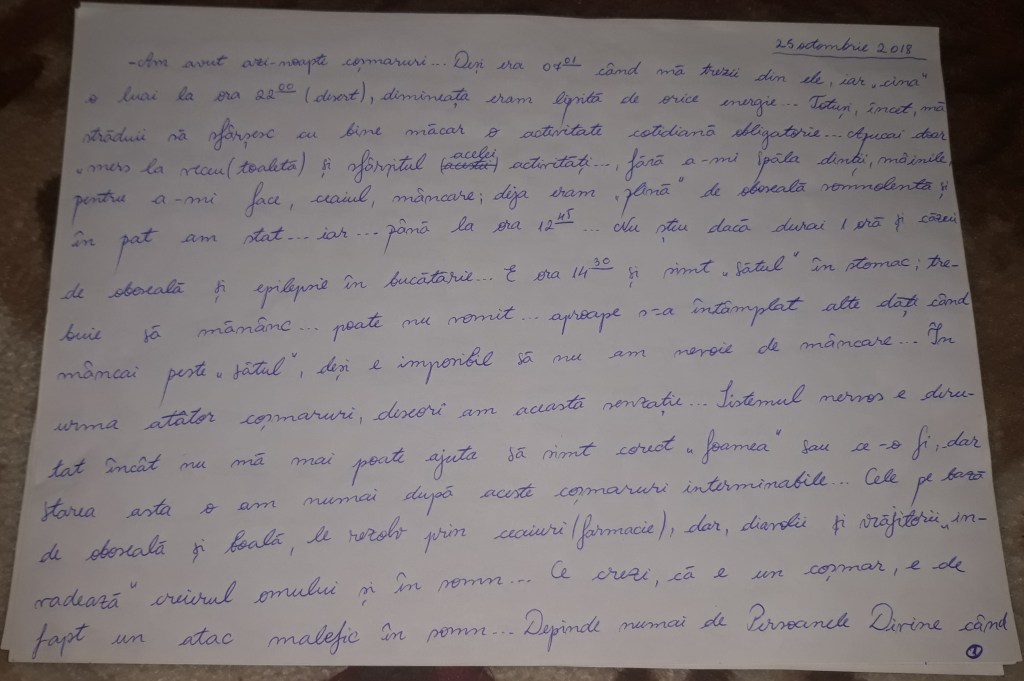 25 octombrie 2018
-Am avut azi-noapte coșmaruri... Deși era 07⁰¹ când mă trezii din ele, iar „cina"
o luai la ora 22⁰⁰ (desert), dimineața eram lipsită de orice energie... Totuși, încet, mă
străduii să sfârșesc cu bine măcar o activitate cotidiană obligatorie... Apucai doar
„mers la veceu (toaletă) și sfârșitul (acesta) acelei activități..., fără a-mi spăla dinții, mâinile,
pentru a-mi face, ceaiul, mâncare; deja eram „plină" de oboseală somnolentă și
în pat am stat... iar... până la ora 12⁴⁵ ... Nu știu dacă durai 1 oră și căzui
de oboseală și epilepsie în bucătărie... E ora 14³⁰ și simt „sătul" în stomac; tre-
buie să mănânc... poate nu vomit... aproape s-a întâmplat alte dăți când
mâncai peste „sătul", deși e imposibil să nu am nevoie de mâncare... În
urma atâtor coșmaruri, deseori am această senzație... Sistemul nervos e deru-
tat încât nu mă mai poate ajuta să simt corect „foamea" sau ce-o fi, dar
starea asta o am numai după aceste coșmaruri interminabile... Cele pe bază
de oboseală și boală, le rezolv prin ceaiuri (farmacie), dar, diavolii și vrăjitorii „in-
vadează" creierul omului și în somn... Ce crezi, că e un coșmar, e de
fapt un atac malefic în somn... Depinde numai de Persoanele Divine când
1